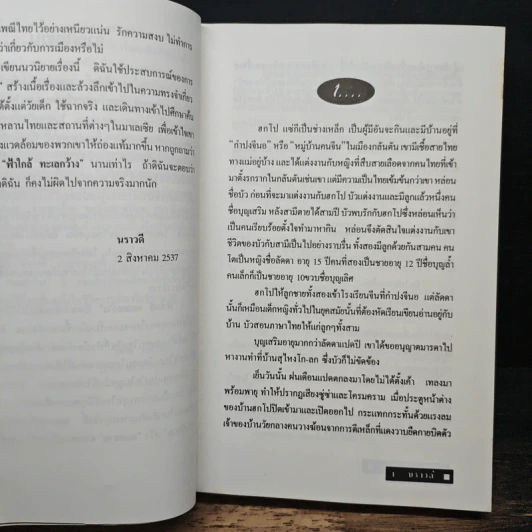 พณีไทยไว้อย่างเหนียวแน่น รักความสงบ ไม่ทำการ
ว่าเกี่ยวกับการเมืองหรือไม่
เขียนนวนิยายเรื่องนี้ ดิฉันใช้ประสบการณ์ของการ
สร้างเนื้อเรื่องและล้วงลึกเข้าไปในความทรงจำเกี่ยว
ได้ตั้งแต่วัยเด็ก ใช้ฉากจริง และเดินทางเข้าไปศึกษาค้น
หลานไทยและสถานที่ต่างๆในมาเลเซีย เพื่อเข้าใจเขา
แวดล้อมของพวกเขาให้ถ่องแท้มากขึ้น หากถูกถามว่า
"ฟ้าใกล้ ทะเลกว้าง" นานเท่าไร ดิฉันจะตอบว่า
ดิฉัน ก็คงไม่ผิดไปจากความจริงมากนัก
นราวดี
2 สิงหาคม 2537
1....
ฮกโป แซ่ก๊กเป็นช่างเหล็ก เป็นผู้มีอันจะกินและมีบ้านอยู่ที่
"กำปงจีนอ" หรือ "หมู่บ้านคนจีน" ในเมืองกลันตัน เขามีเชื้อสายไทย
ทางแม่อยู่บ้าง และได้แต่งงานกับหญิงที่สืบสายเลือดจากคนไทยที่เข้า
มาตั้งรกรากในกลันตันเช่นเขา แต่มีความเป็นไทยเข้มข้นกว่าเขา หล่อน
ชื่อบัว ก่อนที่จะมาแต่งงานกับฮกโป บัวแต่งงานและมีลูกแล้วหนึ่งคน
ชื่อบุญเสริม หลังสามีตายได้สามปี บัวพบรักกับฮกโปซึ่งหล่อนเห็นว่า
เป็นคนเรียบร้อยตั้งใจทำมาหากิน หล่อนจึงตัดสินใจแต่งงานกับเขา
ชีวิตของบัวกับสามีเป็นไปอย่างราบรื่น ทั้งสองมีลูกด้วยกันสามคน คน
โตเป็นหญิงชื่อลัดดา อายุ 15 ปีคนที่สองเป็นชายอายุ 12 ปีชื่อบุญล้ำ
คนเล็กก็เป็นชายอายุ 10ขวบชื่อบุญเลิศ
ฮกโปให้ลูกชายทั้งสองเข้าโรงเรียนจีนที่กำปงจีนอ แต่ลัดดา
นั้นก็เหมือนเด็กหญิงทั่วไปในยุคสมัยนั้นที่ต้องหัดเรียนเขียนอ่านอยู่กับ
บ้าน บัวสอนภาษาไทยให้แก่ลูกๆทั้งสาม
บุญเสริมอายุมากกว่าลัดดาแปดปี เขาได้ขออนุญาตมารดาไป
หางานทำที่บ้านสุไหงโก-ลก ซึ่งบัวก็ไม่ขัดข้อง
เย็นวันนั้น ฝนเดือนแปดตกลงมาโดยไม่ได้ตั้งเค้า เทลงมา
พร้อมพายุ ทำให้ปรากฏเสียงซู่ซ่าและโครมคราม เมื่อประตูหน้าต่าง
ของบ้านฮกโปปิดเข้ามาและเปิดออกไป กระแทกกระทั้นด้วยแรงลม
เจ้าของบ้านวัยกลางคนวางฆ้อนจากการตีเหล็กที่แดงวาบยืดกายบิดตัว
1 นราวดี